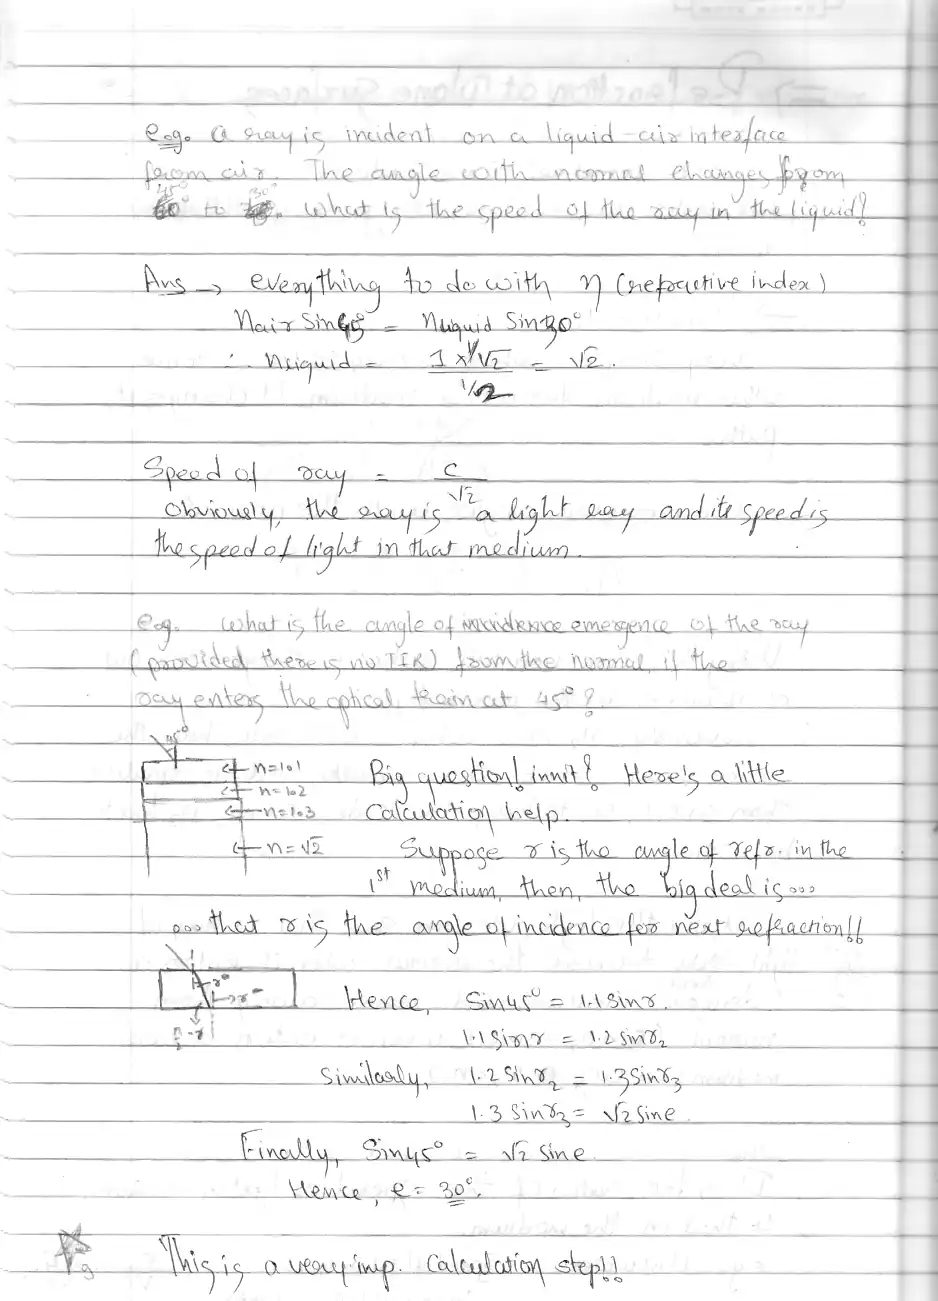 e.g. A ray is incident on a liquid-air interface
from air. The angle with normal changes from
45° to 30°. What is the speed of the ray in the liquid?
Ans → everything to do with η (refractive index)
nair Sin45° = nliquid Sin30°
∴ nliquid = 1 x 1/√2 / 1/2 = √2.
Speed of ray = c/√2
Obviously, the ray is a light ray and its speed is
the speed of light in that medium.
e.g. What is the angle of emergence of the ray
(provided there is no TIR) from the normal, if the
ray enters the optical train at 45°?
45°
n=1.1
n=1.2
n=1.3
n=√2
Big question! innit? Here's a little
Calculation help:
Suppose r is the angle of refr. in the
1st medium, then, the big deal is...
...that r is the angle of incidence for next refraction!!
r
r
Hence, Sin45° = 1.1 Sinr.
1.1 Sinr = 1.2 Sinr₂
Similarly, 1.2 Sinr₂ = 1.3 Sinr₃
1.3 Sinr₃ = √2 Sine
Finally, Sin45° = √2 Sine
Hence, e = 30°.
This is a very imp. Calculation step!!